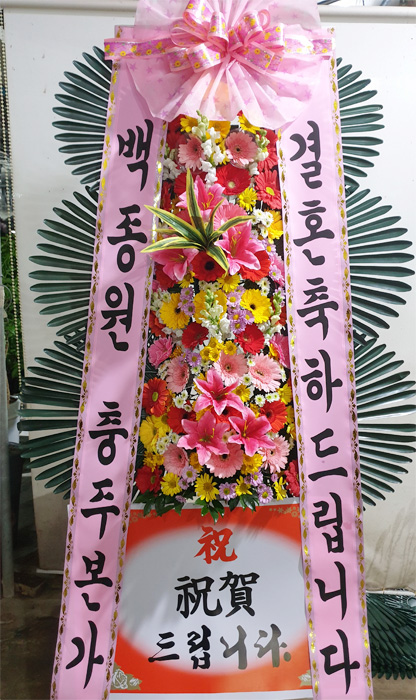 결혼축하드립니다
백종원 충주본가
祝
祝賀
드립니다.